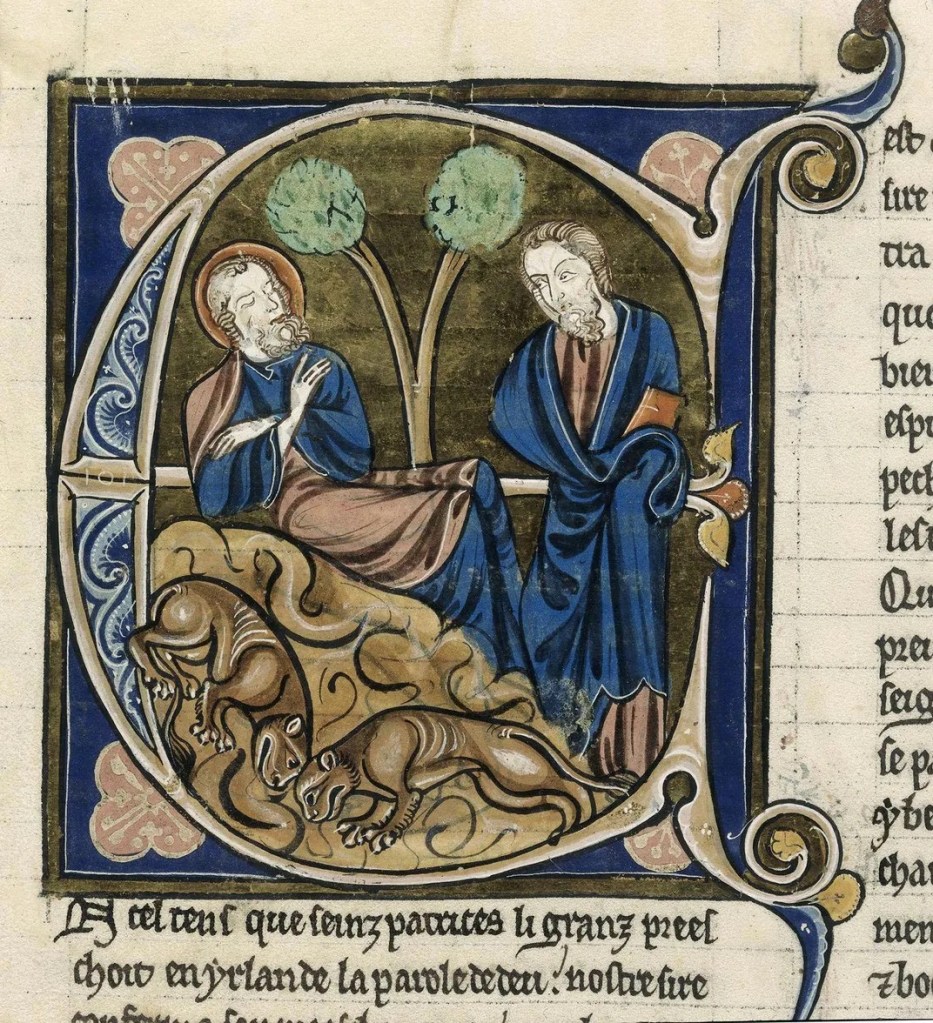 EN cel tens que seinz patrices li granz prees
choit en yrlande la parole de deu. nostre sire
est
sire
tra
que
bien
espi
pech
lesi
Qu
preu
seig
se pa
ybe
char
men